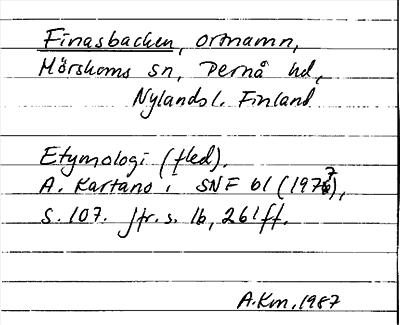 Finasbacken, ortnamn,
Mörskoms sn, Pernå hd,
Nylandsl. Finland
Etymologi (fled).
A. Kartano i SNF 61 (1977),
s. 107. Jfr. s. 16, 261 ff.
A.Km, 1987